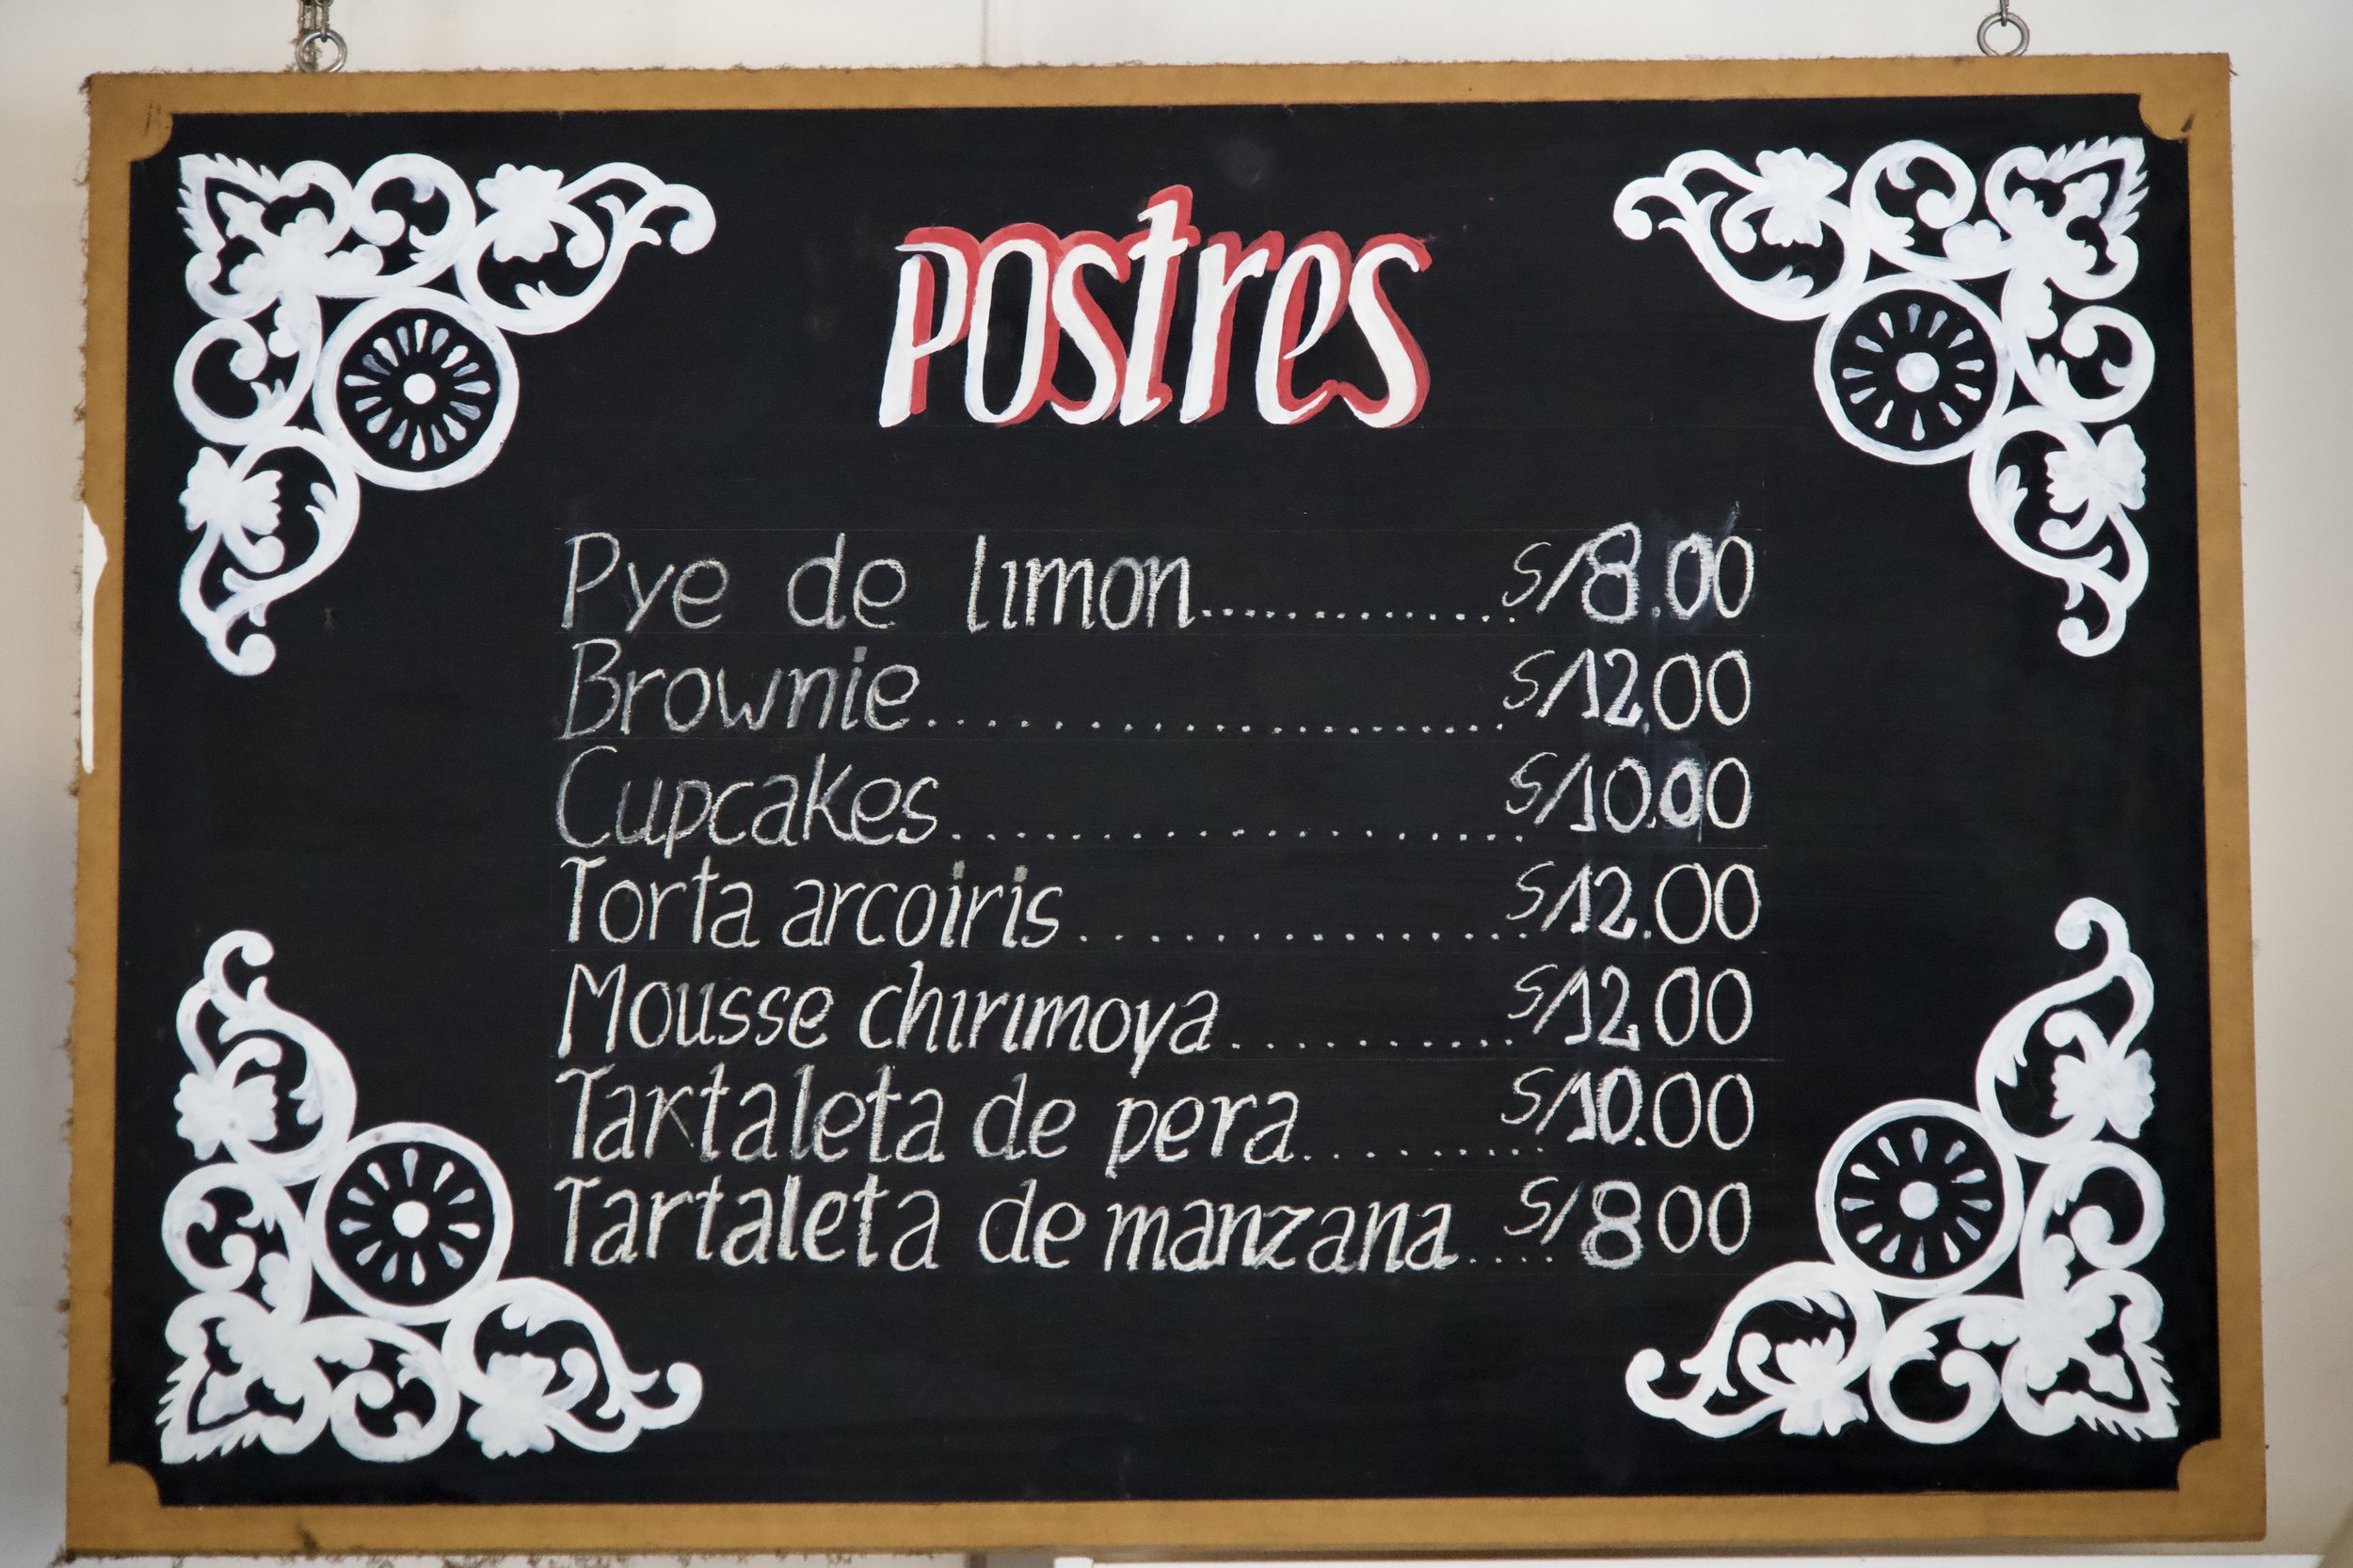 Postres
Pye de limon............... S/8.00
Brownie........................ S/12.00
Cupcakes........................ S/10.00
Torta arcoiris.................... S/12.00
Mousse chirimoya............ S/12.00
Tartaleta de pera........... S/10.00
Tartaleta de manzana..... S/8.00